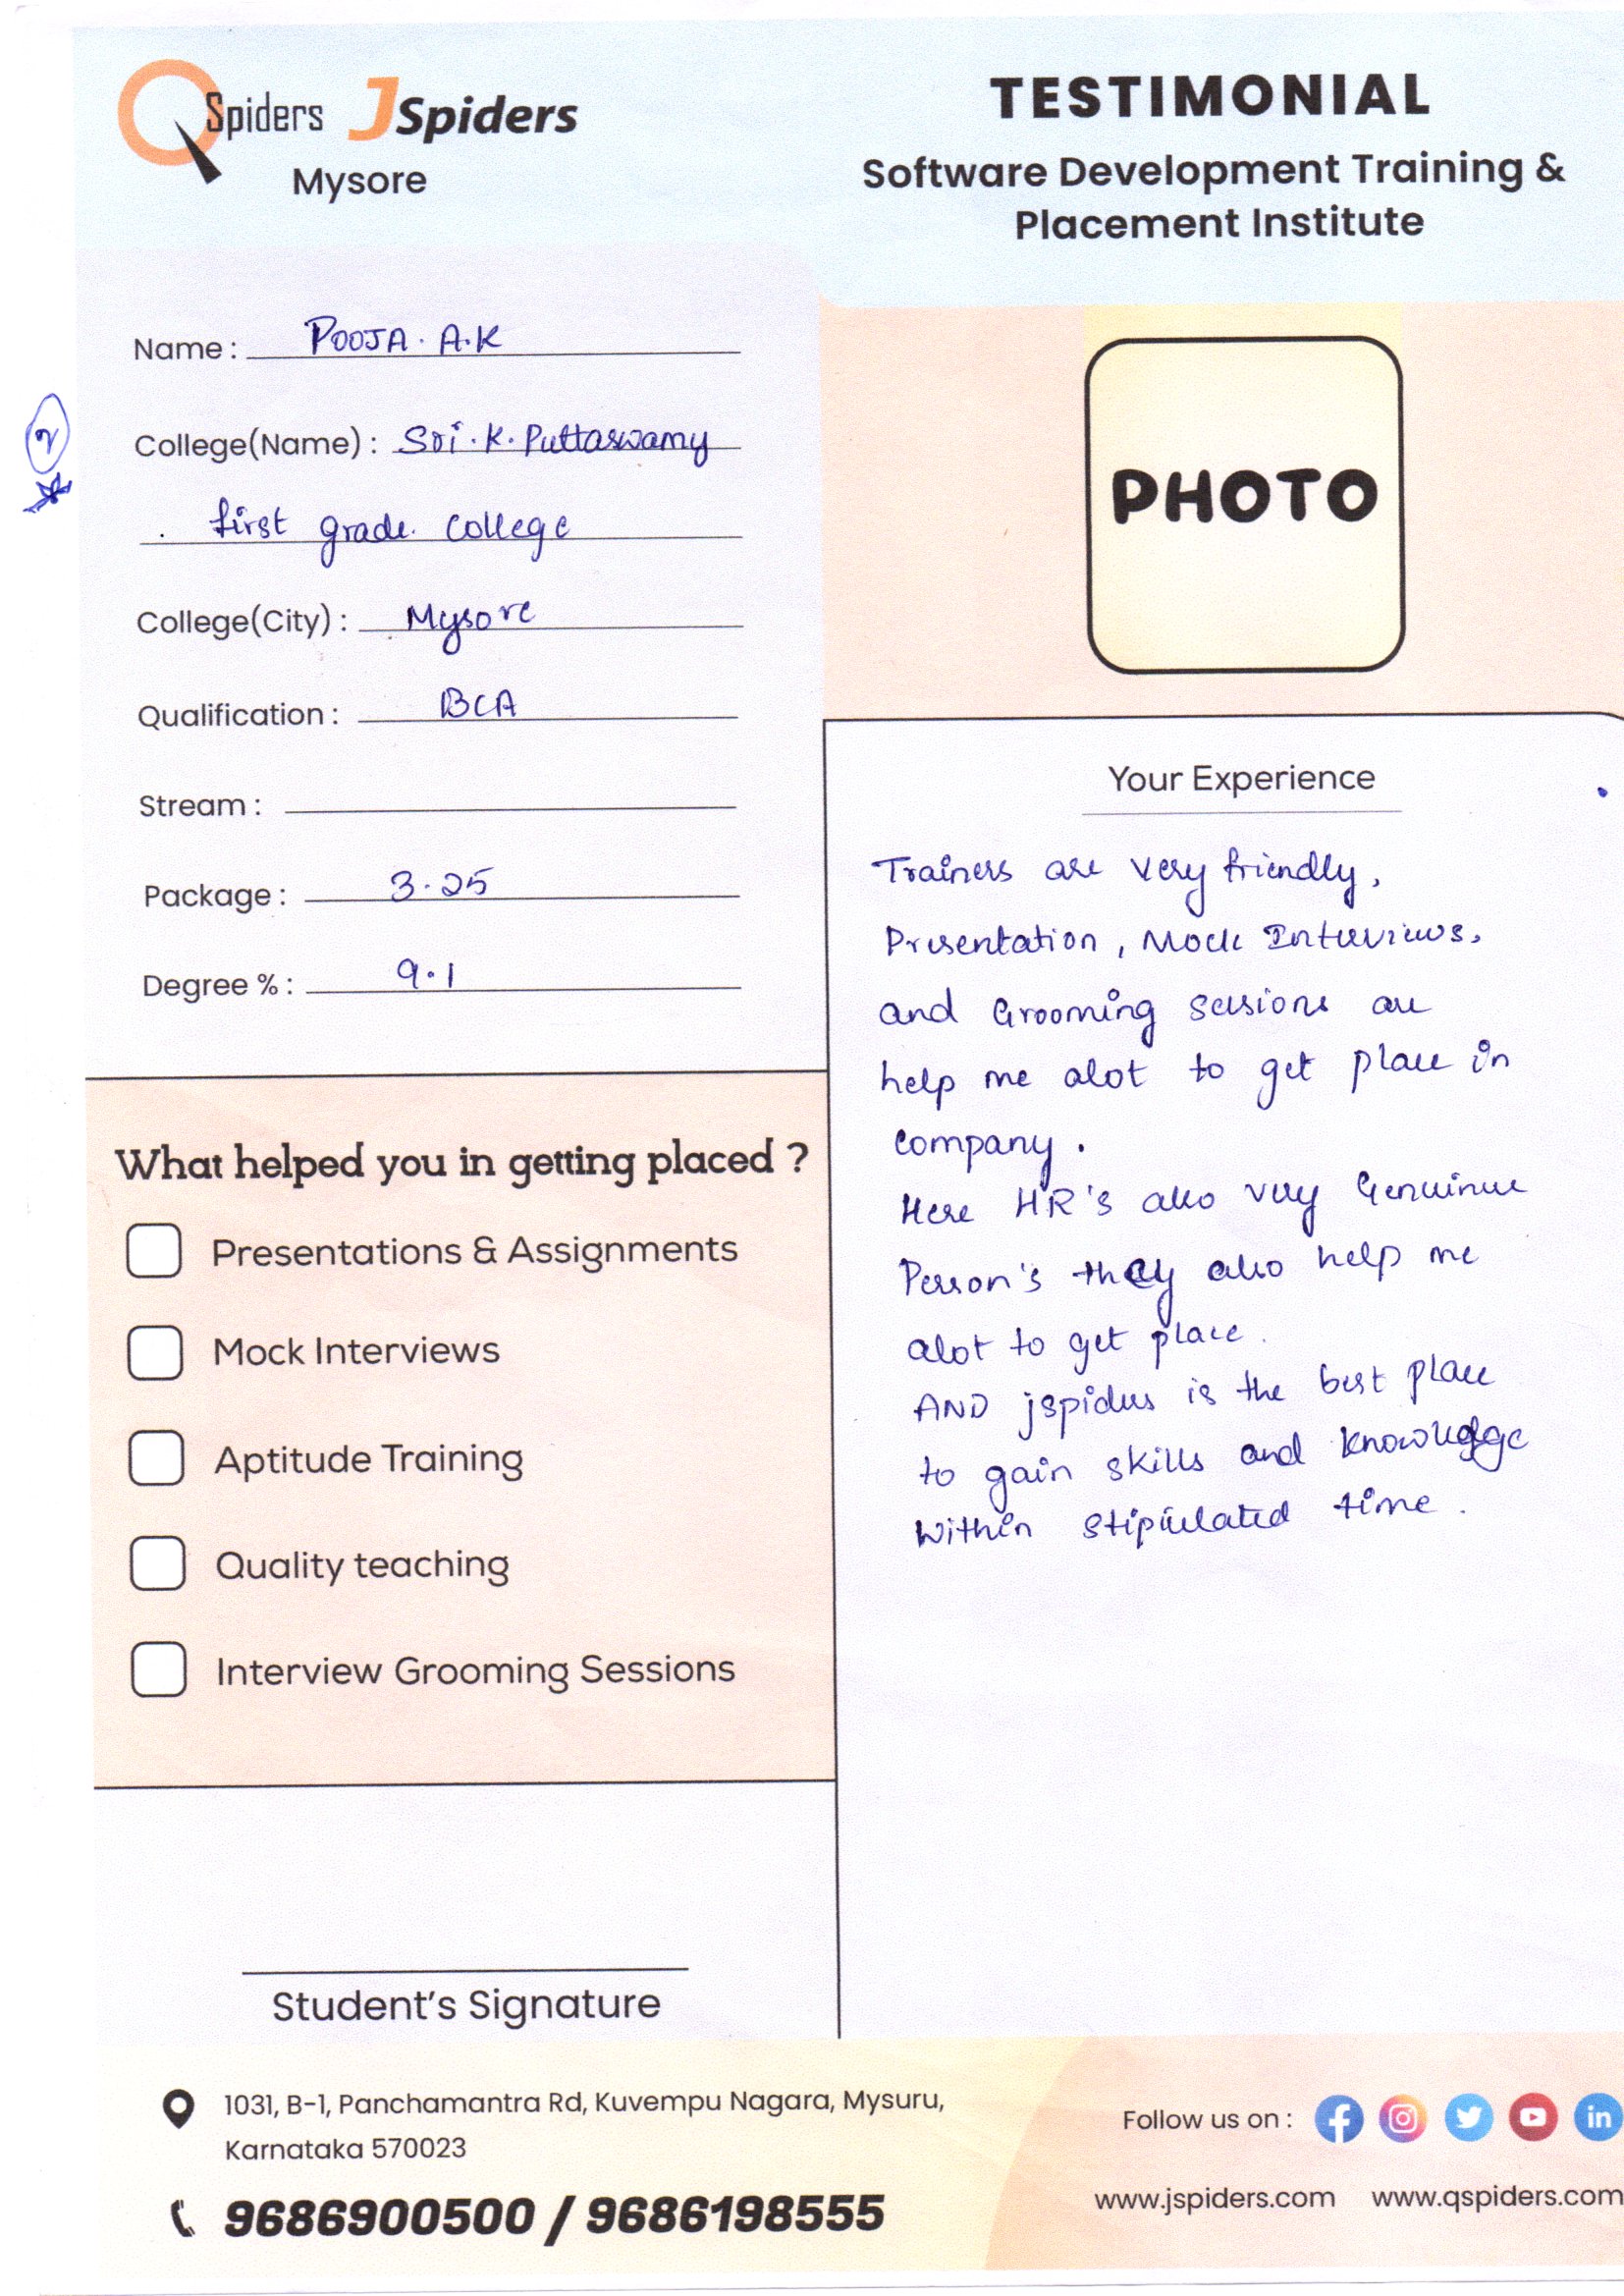 QSpiders JSpiders
Mysore
TESTIMONIAL
Software Development Training &
Placement Institute
Name : POOJA. A.K
College(Name) : Sri. K. Puttaswamy
first grade college
College(City) : Mysore
Qualification : BCA
Stream :
Package : 3.25
Degree % : 9.1
2
PHOTO
What helped you in getting placed ?
Presentations & Assignments
Mock Interviews
Aptitude Training
Quality teaching
Interview Grooming Sessions
Student's Signature
Your Experience
Trainers are very friendly,
Presentation, Mock Interviews,
and Grooming sessions are
help me alot to get place in
company.
Here HR's also very Genuinue
Person's they also help me
alot to get place.
AND jspiders is the best place
to gain skills and knowledge
within stipulated time.
1031, B-1, Panchamantra Rd, Kuvempu Nagara, Mysuru,
Karnataka 570023
9686900500 / 9686198555
Follow us on :
www.jspiders.com www.qspiders.com